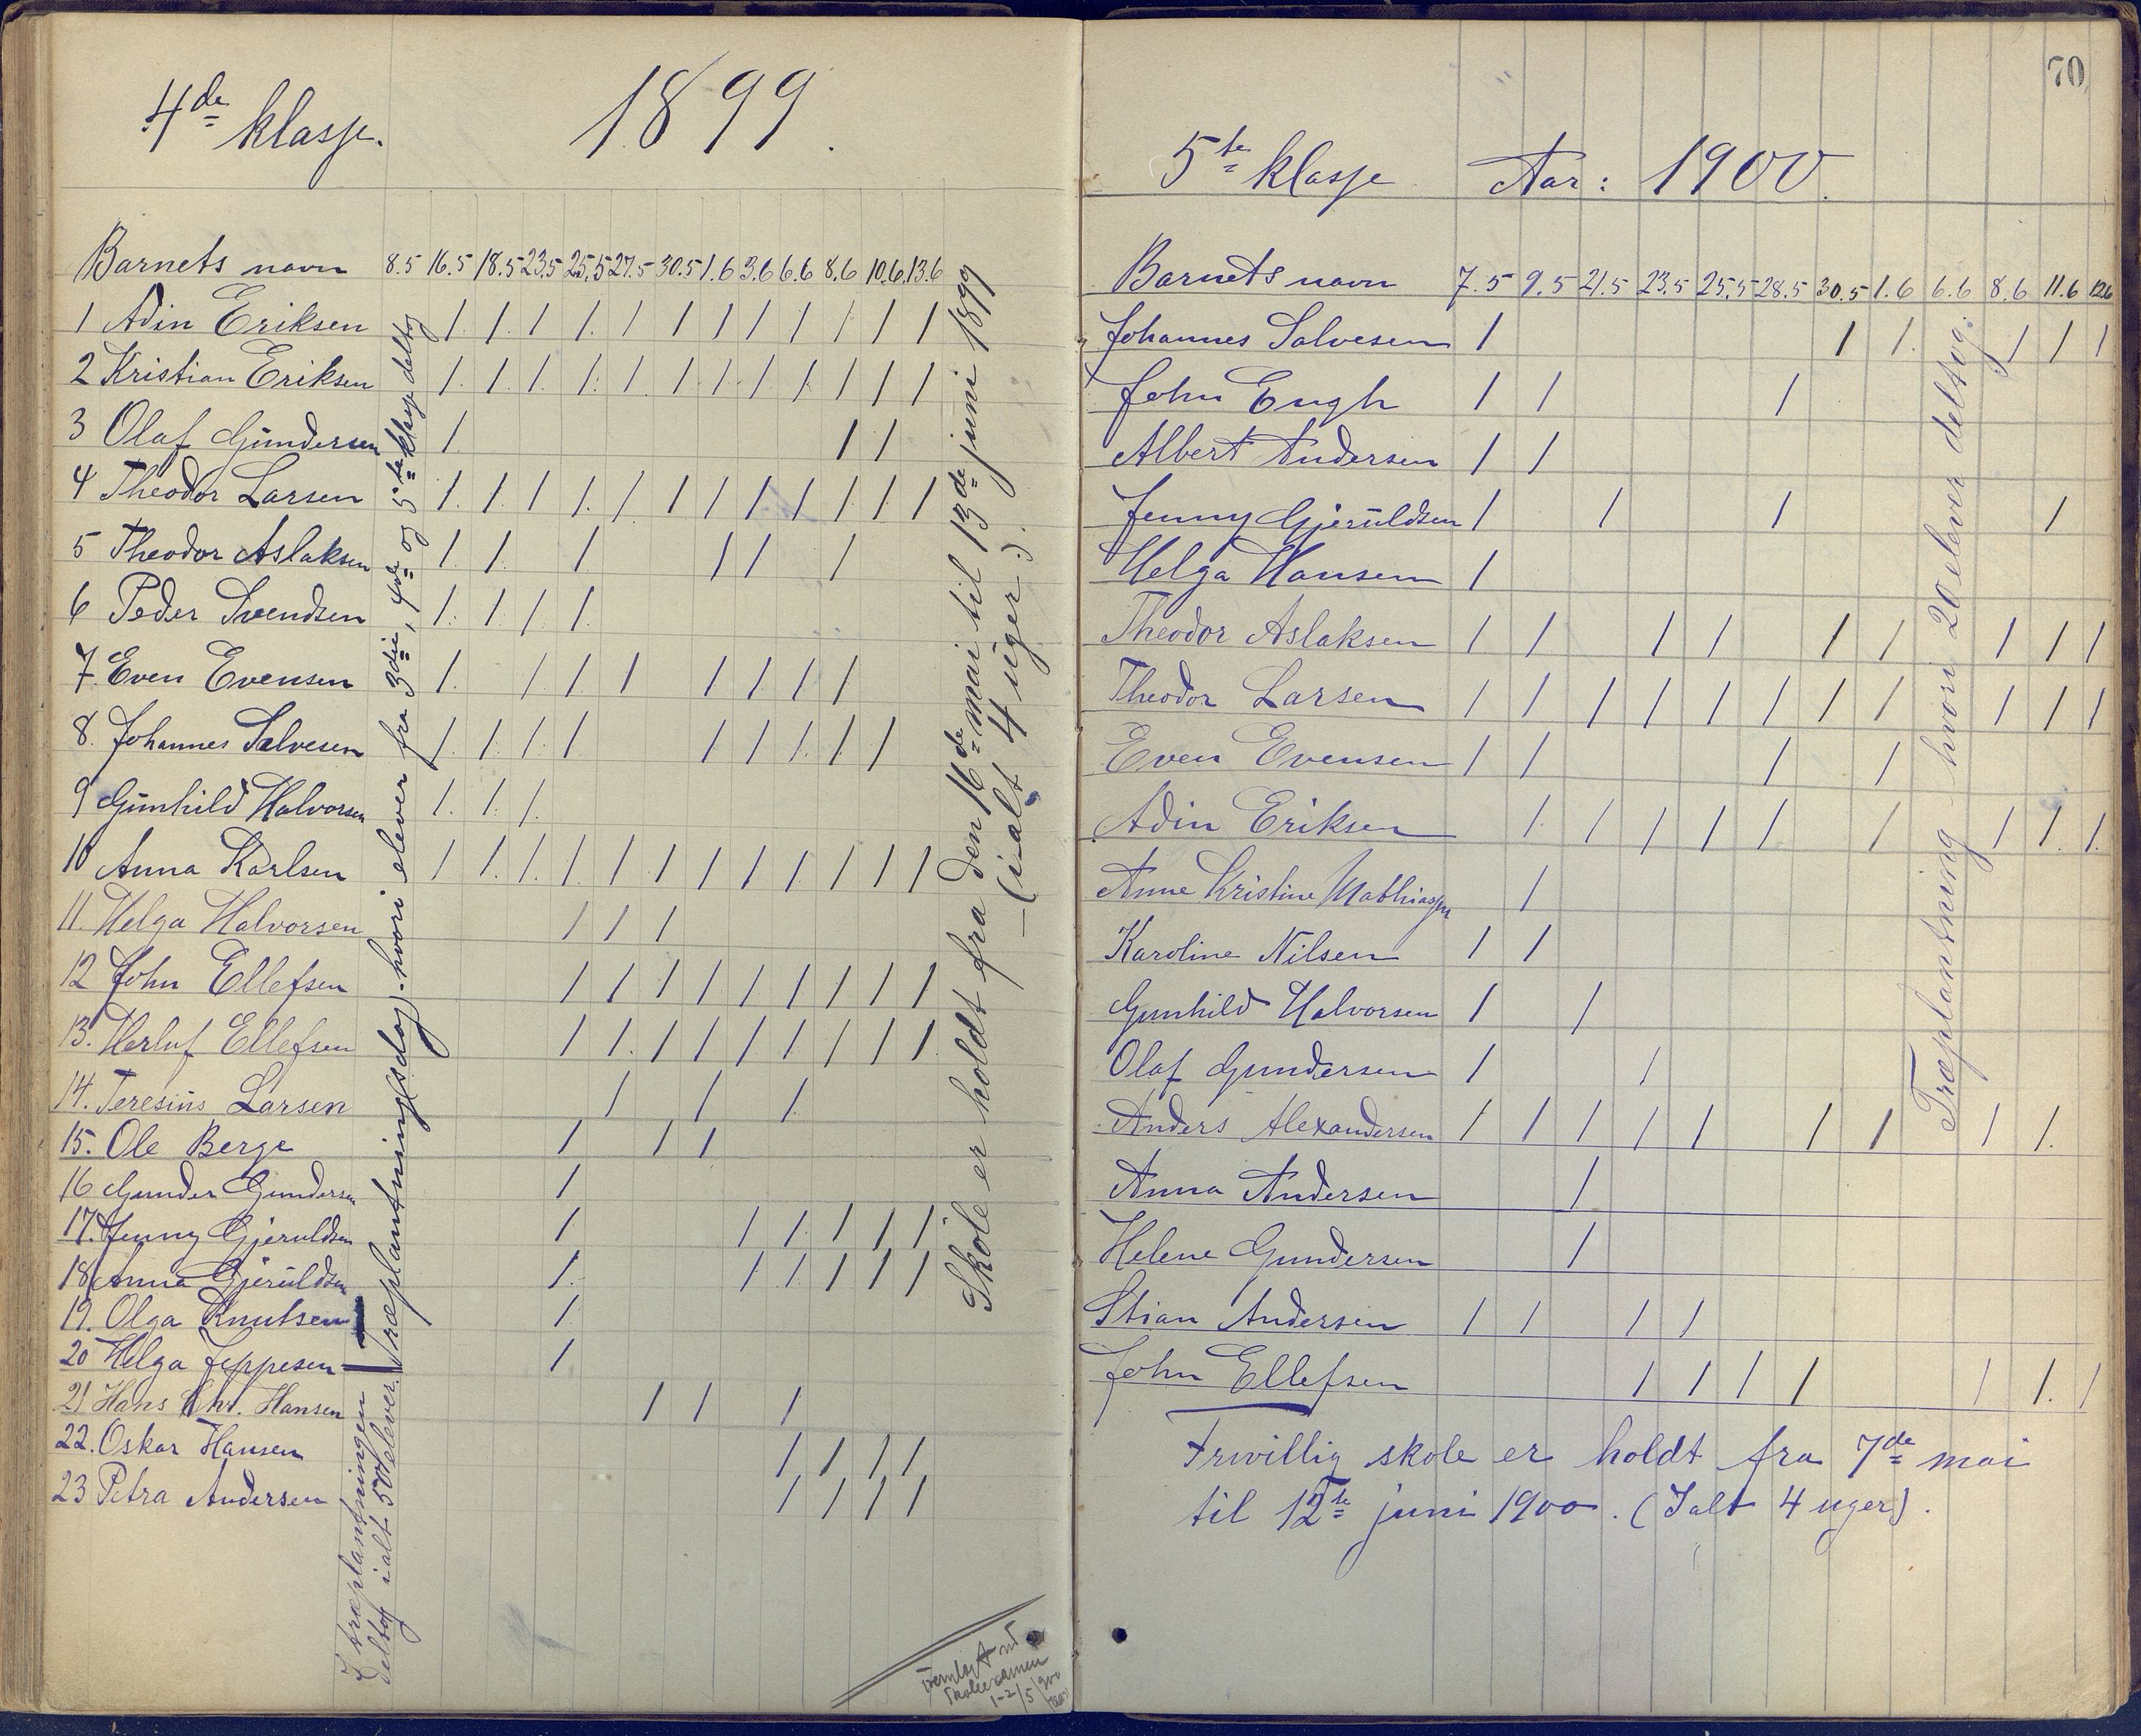 4de klasse.
1899.
Barnets navn 8.5 16.5 18.5 23.5 25.5 27.5 30.5 1.6 3.6 6.6 8.6 10.6 13.6
1 Adin Eriksen / / / / / / / / / / / /
2 Kristian Eriksen / / / / / / / / / / / /
3 Olaf Gundersen / / /
4 Theodor Larsen / / / / / / / / / / / /
5 Theodor Aslaksen / / / / / /
6 Peder Svendsen / / / /
7. Even Evensen / / / / / / / /
8. Johannes Salvesen / / / / / / / / /
9 Gunhild Halvorsen / / /
10 Anna Karlsen / / / / / / / / / / / /
11. Helga Halvorsen / / /
12 John Ellefsen / / / / / / / / /
13. Herluf Ellefsen / / / / / / / / /
14. Teresius Larsen / / /
15. Ole Berge / / /
16 Gunder Gundersen /
17. Jenny Gjeruldsen / / / / / /
18 Anna Gjeruldsen / / / / / /
19. Olga Knutsen /
20 Helga Jeppesen /
21 Hans Chr. Hansen / / /
22. Oskar Hansen / / / /
23 Petra Andersen / / / /
Træplantningsdag. hvori elever fra 3die, 4de og 5te klasse deltog
I træplantningen
deltog ialt 50 elever.
Skole er holdt fra den 16de mai til 13de juni 1899
(ialt 4 uger.).
Fremlagt ved
skoleexamen
1-2/5 1900
70
5te klasse Aar: 1900.
Barnets navn 7.5 9.5 21.5 23.5 25.5 28.5 30.5 1.6 6.6 8.6 11.6 12.6
Johannes Salvesen / / / / / /
John Engh / / /
Albert Andersen / /
Jenny Gjeruldsen / / / /
Helga Hansen /
Theodor Aslaksen / / / / / / / / /
Theodor Larsen / / / / / / / / / / /
Even Evensen / / / /
Adin Eriksen / / / / / / / / /
Anne Kristine Mathiassen /
Karoline Nilsen / /
Gunhild Halvorsen / /
Olaf Gundersen / /
Anders Alexandersen / / / / / / / / /
Anna Andersen /
Helene Gundersen /
Stian Andersen / / / /
John Ellefsen / / / / / / /
Træplantning hvori 20 elever deltog.
Frivillig skole er holdt fra 7de mai
til 12te juni 1900. (Ialt 4 uger).